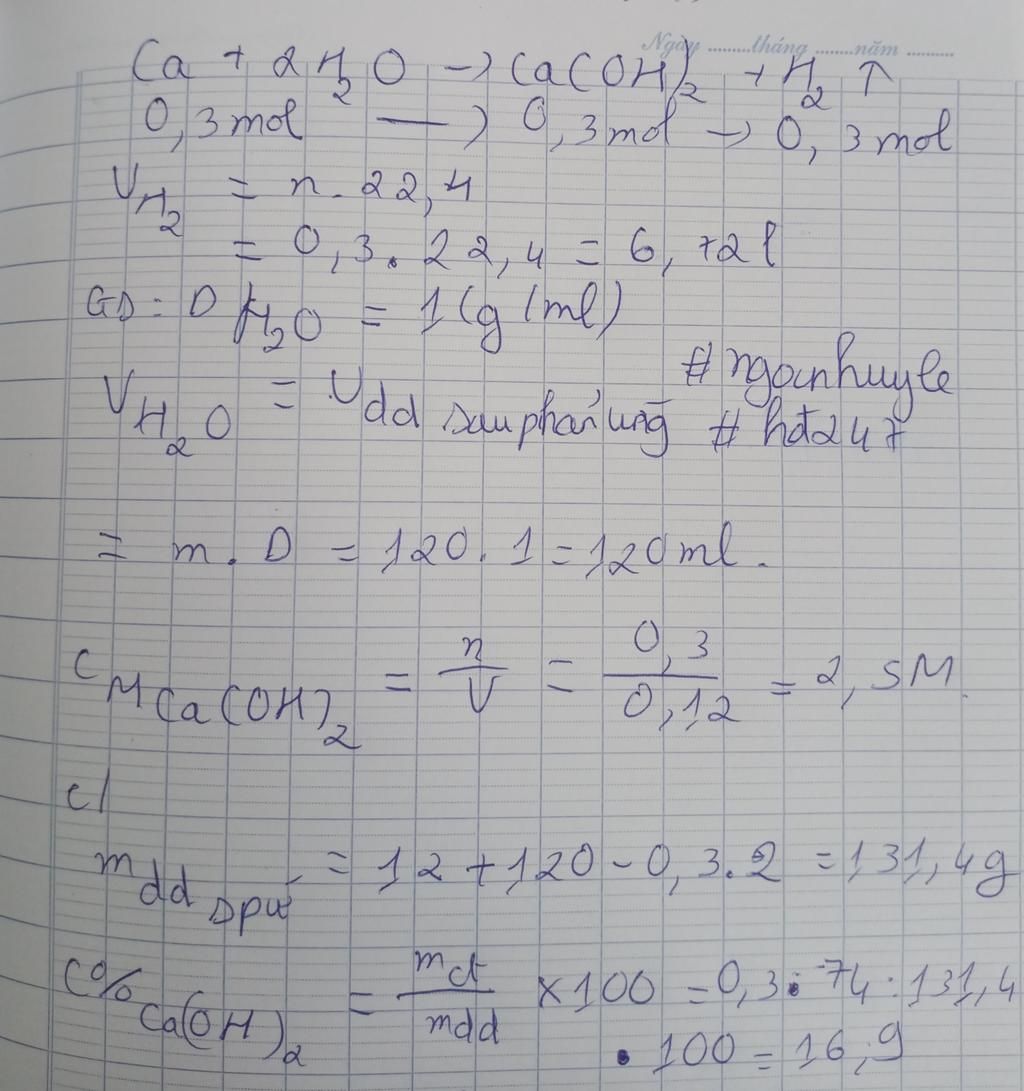 Ngày ........tháng .......năm .........
Ca + 2H₂O → Ca(OH)₂ + H₂ ↑
0,3mol → 0,3mol → 0,3mol
V_H₂ = n.22,4
= 0,3.22,4 = 6,72l
GD: D H₂O = 1 (g/ml)
#ngocnhuyle
V_H₂O = V dd sau phản ứng # hđ247
= m.D = 120.1 = 120ml.
C_M Ca(OH)₂ = n/V = 0,3/0,12 = 2,5M.
c/
m dd spư = 12 + 120 - 0,3.2 = 131,4g
C% Ca(OH)₂ = mct/mdd ×100 = 0,3.74:131,4
.100 = 16,9